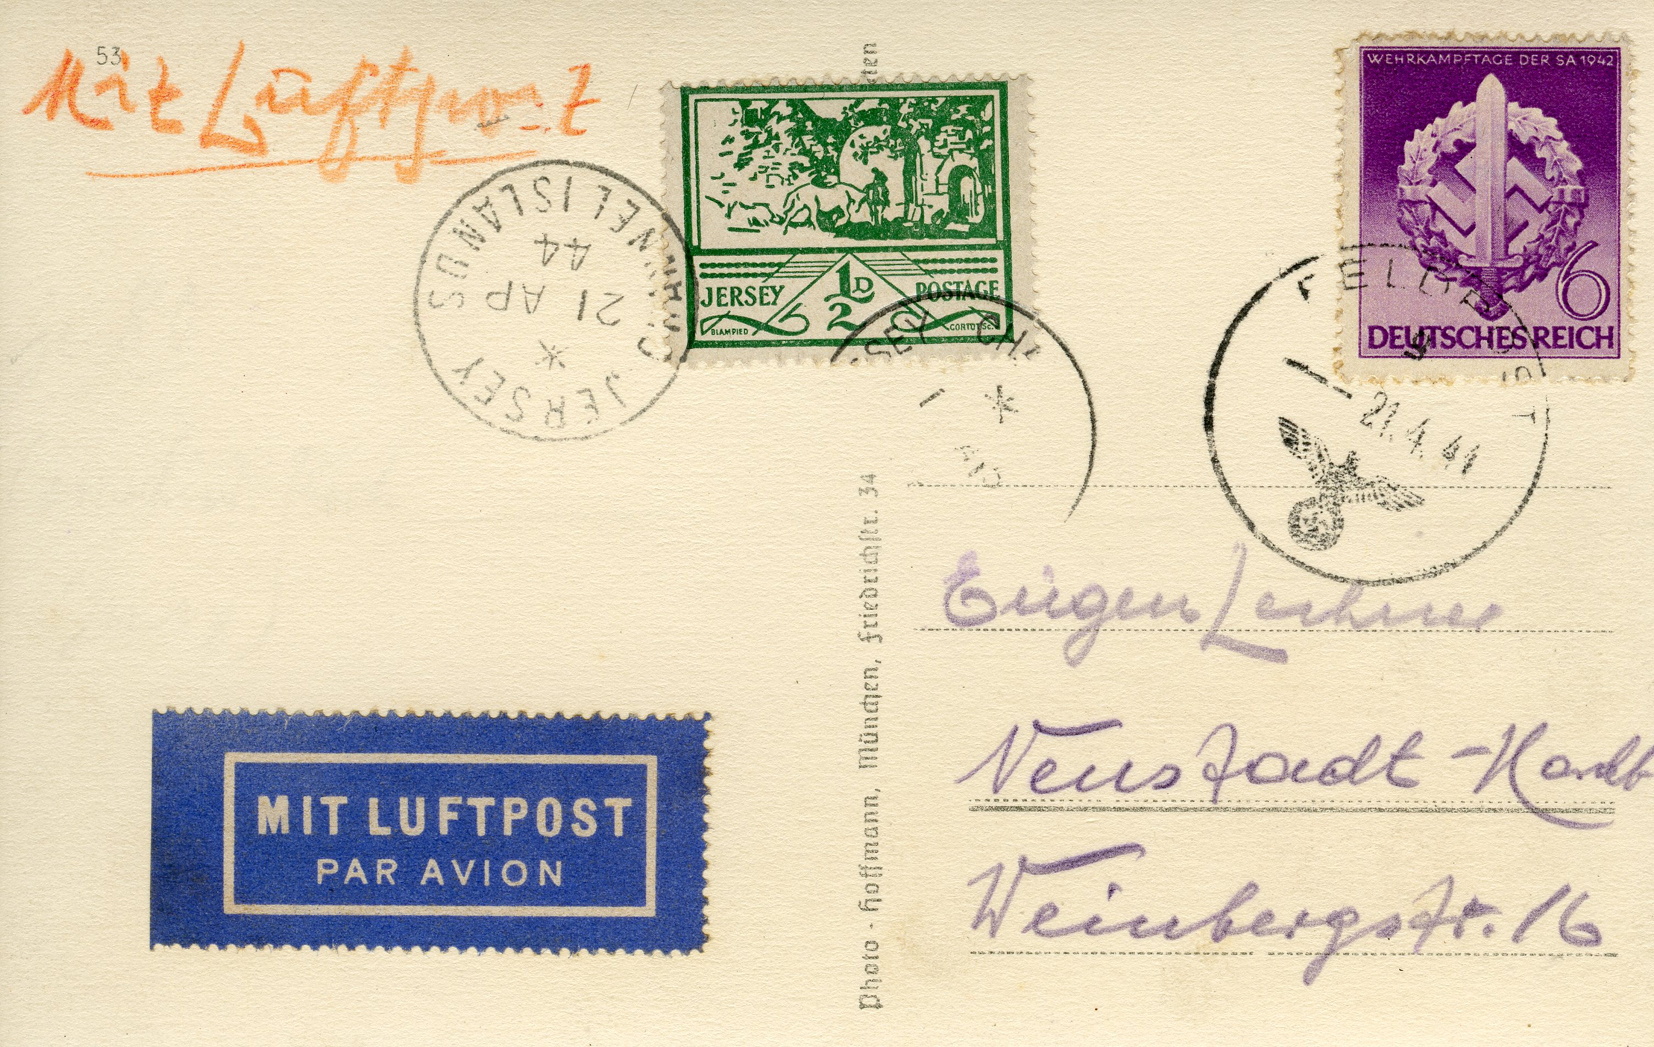 53
Mit Luftpost
WEHRKAMPFTAGE DER SA 1942
6
DEUTSCHES REICH
JERSEY POSTAGE
½D
BLAMPIED
JERSEY CHANNEL ISLANDS
21 AP
44
SEY CHA
AP
FELDPOST
21.4.44
Eugen Lechner
Neustadt-Hardt
Weinbergstr. 16
MIT LUFTPOST
PAR AVION
Photo-Hoffmann, München, Friedrichstr. 34